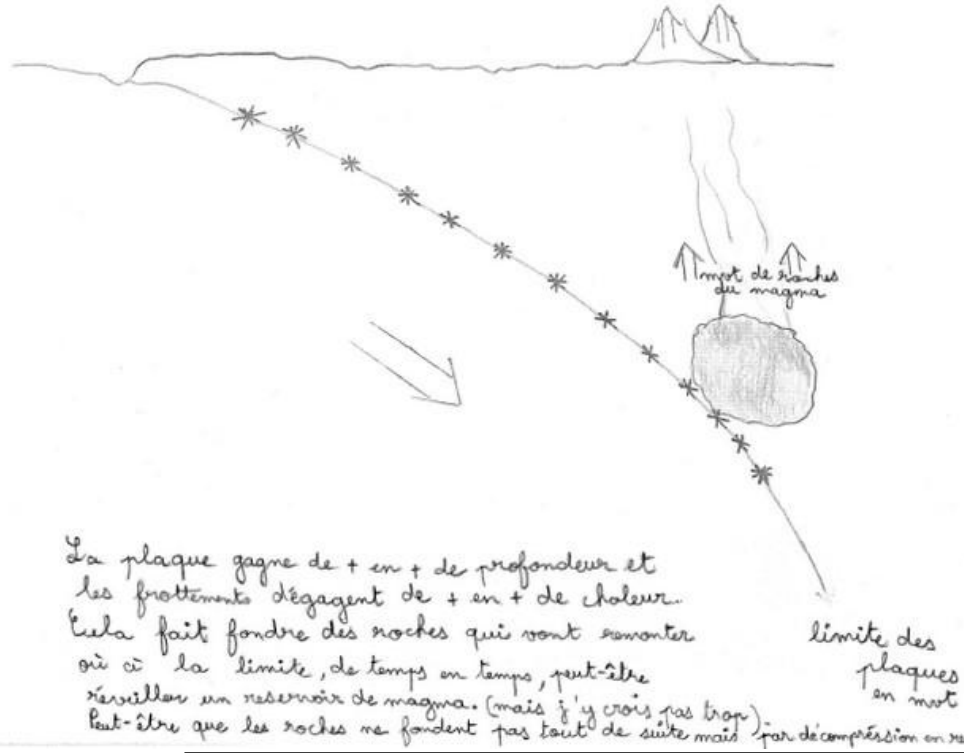 mvt de roches
du magma
La plaque gagne de + en + de profondeur et
les frottements dégagent de + en + de chaleur.
Cela fait fondre des roches qui vont remonter
où à la limite, de temps en temps, peut-être
réveiller un reservoir de magma. (mais j'y crois pas trop)
Peut-être que les roches ne fondent pas tout de suite mais par décompréssion en re
limite des
plaques
en mvt